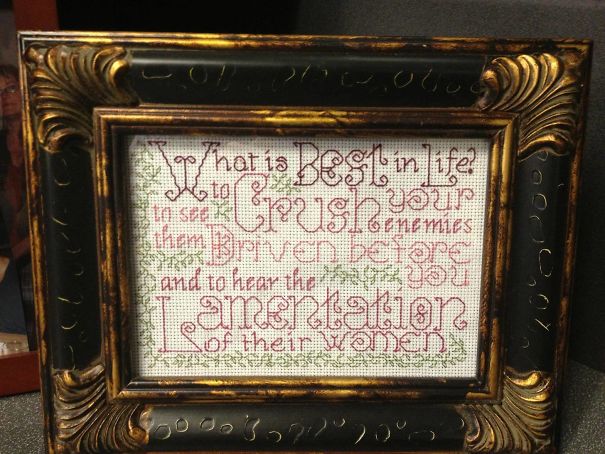 What is Best in life?
to Crush your
to see enemies
them Driven before
and to hear the you
Lamentation
of their women